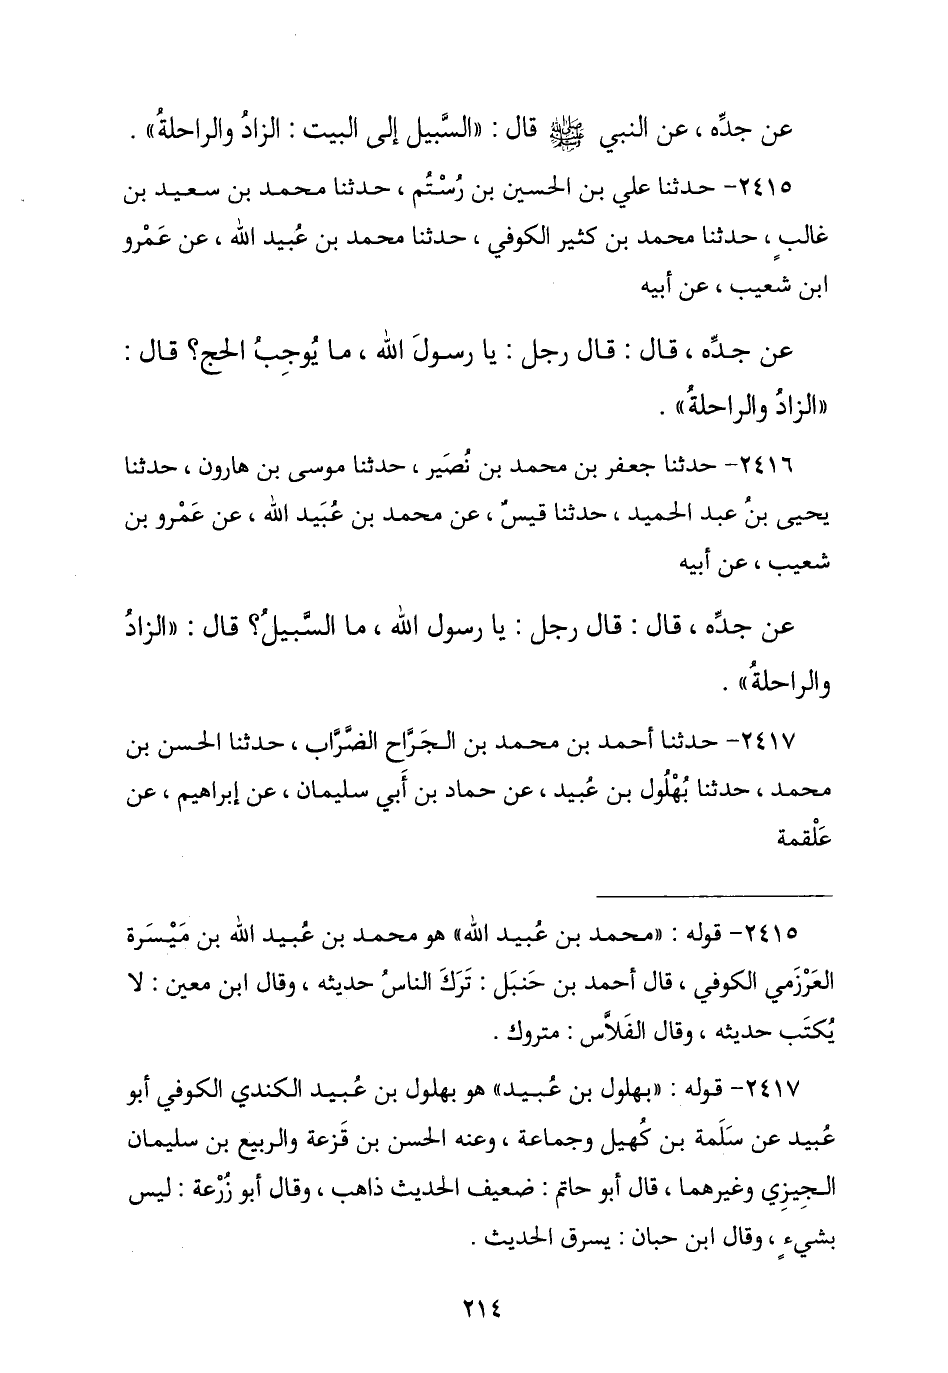 عن جدِّه ، عن النبي ﷺ قال : «السَّبيل إلى البيت : الزادُ والراحلةُ» .
٢٤١٥- حدثنا علي بن الحسين بن رُسْتُم ، حدثنا محمد بن سعيد بن
غالبٍ ، حدثنا محمد بن كثير الكوفي ، حدثنا محمد بن عُبيد الله ، عن عَمْرو
ابن شعيب ، عن أبيه
عن جدِّه ، قال : قال رجل : يا رسولَ الله ، ما يُوجِبُ الحج؟ قال :
«الزادُ والراحلةُ» .
٢٤١٦- حدثنا جعفر بن محمد بن نُصَير ، حدثنا موسى بن هارون ، حدثنا
يحيى بنُ عبد الحميد ، حدثنا قيسٌ ، عن محمد بن عُبَيد الله ، عن عَمْرو بن
شعيب ، عن أبيه
عن جدِّه ، قال : قال رجل : يا رسول الله ، ما السَّبيلُ؟ قال : «الزادُ
والراحلةُ» .
٢٤١٧- حدثنا أحمد بن محمد بن الجَرَّاح الضَّرَّاب ، حدثنا الحسن بن
محمد ، حدثنا بُهْلُول بن عُبيد ، عن حماد بن أَبي سليمان ، عن إبراهيم ، عن
عَلْقمة
٢٤١٥- قوله : «محمد بن عُبيد الله» هو محمد بن عُبيد الله بن مَيْسَرة
العَرْزَمي الكوفي ، قال أحمد بن حَنبَل : تَرَكَ الناسُ حديثه ، وقال ابن معين : لا
يُكتَب حديثه ، وقال الفَلاَّس : متروك .
٢٤١٧- قوله : «بهلول بن عُبيد» هو بهلول بن عُبيد الكندي الكوفي أبو
عُبيد عن سَلَمة بن كُهيل وجماعة ، وعنه الحسن بن قَزعة والربيع بن سليمان
الجِيزِي وغيرهما ، قال أبو حاتم : ضعيف الحديث ذاهب ، وقال أبو زُرْعة : ليس
بشيءٍ ، وقال ابن حبان : يسرق الحديث .
٢١٤